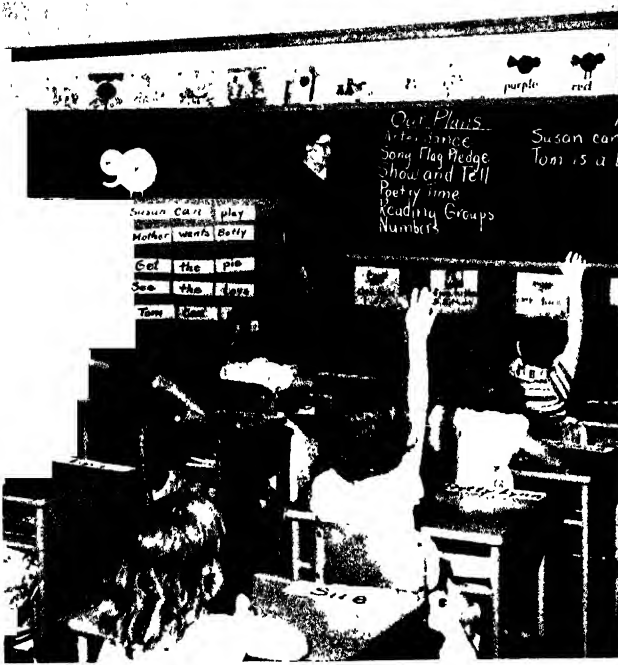 purple
red
Our Plans
Attendance
Song Flag Pledge
Show and Tell
Poetry Time
Reading Groups
Numbers
Susan can
Tom is a
Susan can play
Mother wants Betty
Get the pie
See the
Tom
Sue